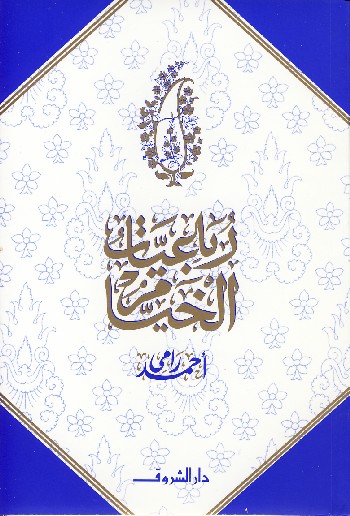 رباعيات
الخيام
أحمد رامى
دار الشروق